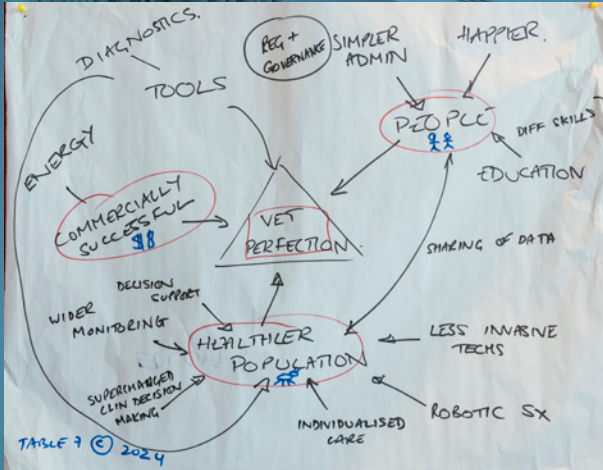 DIAGNOSTICS.
TOOLS
REG +
GOVERNANCE
SIMPLER
ADMIN
HAPPIER.
PEOPLE
DIFF SKILLS
EDUCATION
ENERGY
COMMERCIALLY
SUCCESSFUL
$$
VET
PERFECTION
SHARING OF DATA
DECISION
SUPPORT
WIDER
MONITORING
HEALTHIER
POPULATION
LESS INVASIVE
TECHS
SUPERCHARGED
CLIN DECISION
MAKING
INDIVIDUALISED
CARE
ROBOTIC SX
TABLE 7 © 2024